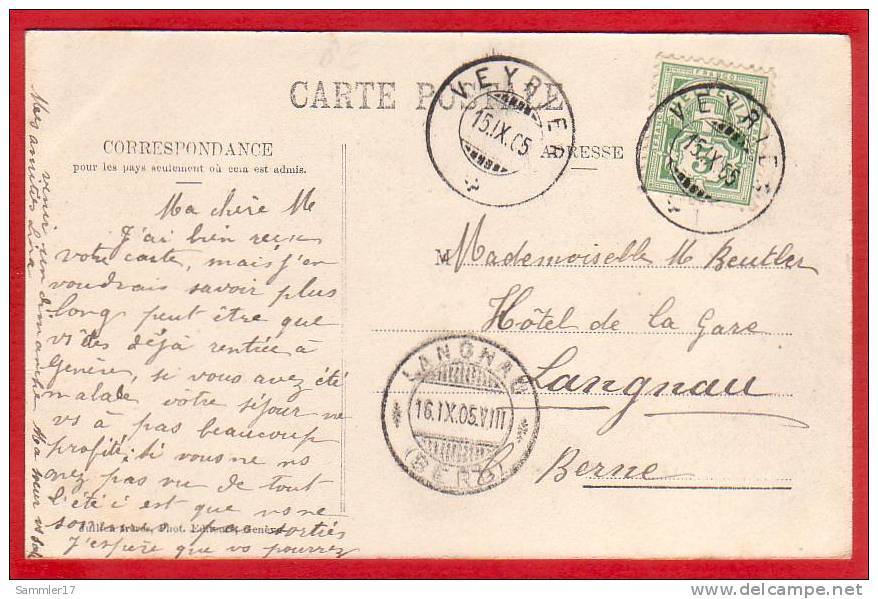 CARTE POSTALE
CORRESPONDANCE
pour les pays seulement où cela est admis.
ADRESSE
VEYRIER
15.IX.05
FRANCO
VEYRIER
15.IX.05
5
Ma chère M
J'ai bien reçu
votre carte, mais j'en
voudrais savoir plus
long peut être que
vs êtes déjà rentrée à
Genève, si vous avez été
malade votre séjour ne
vs à pas beaucoup
profité; si vous ne ns
avez pas vu de tout
l'été c est que vs ne
sommes pas sorties
J'espère que vs pourrez
venir un dimanche Ma sœur vs
Mes amitiés Lina
Jullien frères, Phot. Editeurs, Genève
M
Mademoiselle M Beutler
Hôtel de la Gare
Langnau
Berne
LANGNAU
16.IX.05.VIII
(BERN)
Sammler17
www.delcampe.net